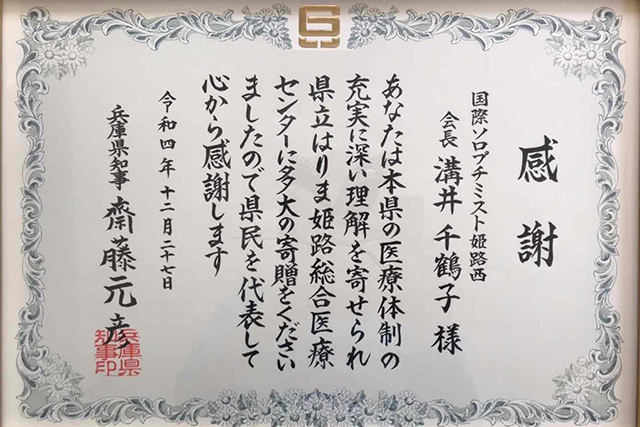 感謝
国際ソロプチミスト姫路西
会長 溝井千鶴子様
あなたは本県の医療体制の
充実に深い理解を寄せられ
県立はりま姫路総合医療
センターに多大の寄贈をください
ましたので県民を代表して
心から感謝します
令和四年十二月二十七日
兵庫県知事 齋藤元彦
兵庫県
知事印